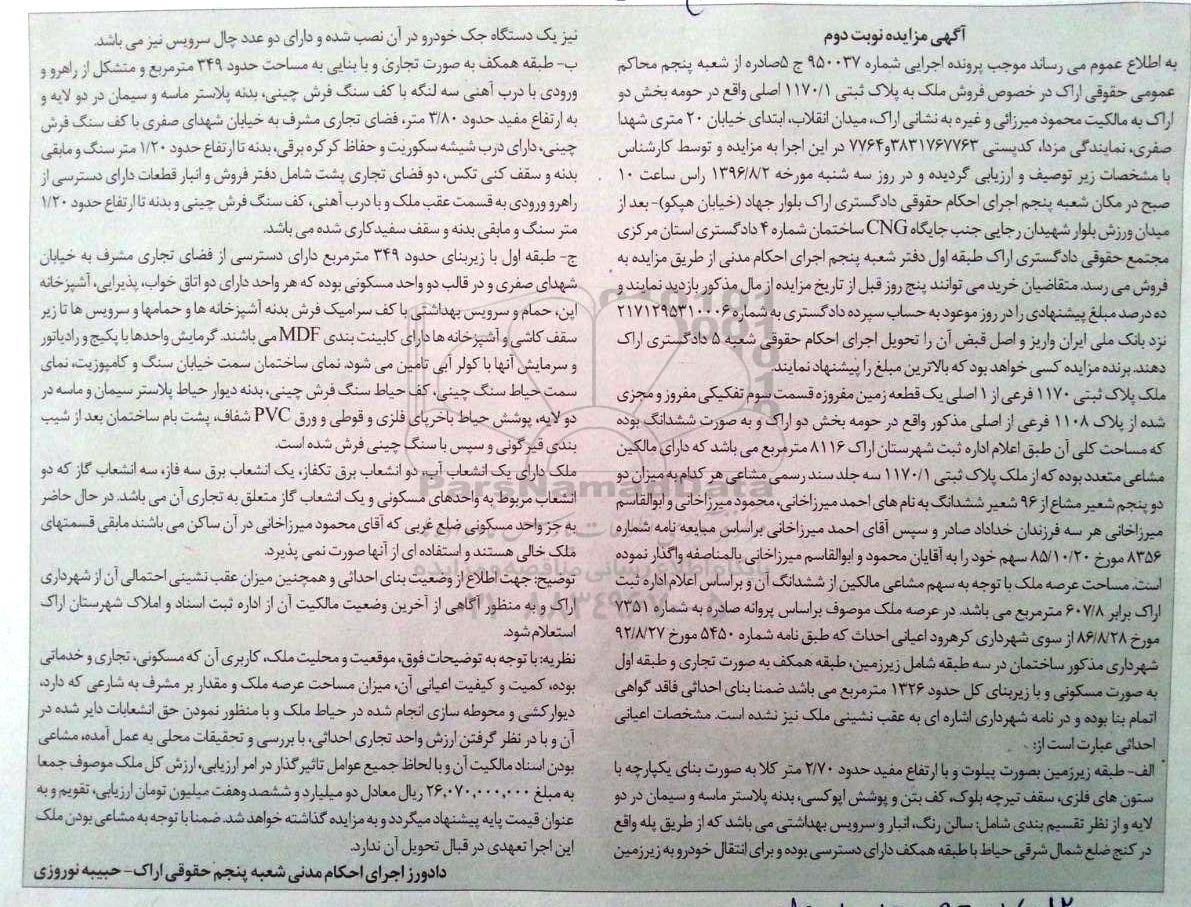 آگهی مزایده نوبت دوم
به اطلاع عموم می رساند موجب پرونده اجرایی شماره ۹۵۰۰۳۷ ج ۵صادره از شعبه پنجم محاکم
عمومی حقوقی اراک در خصوص فروش ملک به پلاک ثبتی ۱۱۷۰/۱ اصلی واقع در حومه بخش دو
اراک به مالکیت محمود میرزائی و غیره به نشانی اراک، میدان انقلاب، ابتدای خیابان ۲۰ متری شهدا
صفری، نمایندگی مزدا، کدپستی ۳۸۳۱۷۶۷۷۶۳و۷۷۶۴ در این اجرا به مزایده و توسط کارشناس
با مشخصات زیر توصیف و ارزیابی گردیده و در روز سه شنبه مورخه ۱۳۹۶/۸/۲ راس ساعت ۱۰
صبح در مکان شعبه پنجم اجرای احکام حقوقی دادگستری اراک بلوار جهاد (خیابان هپکو)- بعد از
میدان ورزش بلوار شهیدان رجایی جنب جایگاه CNG ساختمان شماره ۴ دادگستری استان مرکزی
مجتمع حقوقی دادگستری اراک طبقه اول دفتر شعبه پنجم اجرای احکام مدنی از طریق مزایده به
فروش می رسد. متقاضیان خرید می توانند پنج روز قبل از تاریخ مزایده از مال مذکور بازدید نمایند و
ده درصد مبلغ پیشنهادی را در روز موعود به حساب سپرده دادگستری به شماره ۲۱۷۱۲۹۵۳۱۰۰۰۶
نزد بانک ملی ایران واریز و اصل قبض آن را تحویل اجرای احکام حقوقی شعبه ۵ دادگستری اراک
دهند. برنده مزایده کسی خواهد بود که بالاترین مبلغ را پیشنهاد نمایند.
ملک پلاک ثبتی ۱۱۷۰ فرعی از ۱ اصلی یک قطعه زمین مفروزه قسمت سوم تفکیکی مفروز و مجزی
شده از پلاک ۱۱۰۸ فرعی از اصلی مذکور واقع در حومه بخش دو اراک و به صورت ششدانگ بوده
که مساحت کلی آن طبق اعلام اداره ثبت شهرستان اراک ۸۱۱۶ مترمربع می باشد که دارای مالکین
مشاعی متعدد بوده که از ملک پلاک ثبتی ۱۱۷۰/۱ سه جلد سند رسمی مشاعی هر کدام به میزان دو
دو پنجم شعیر مشاع از ۹۶ شعیر ششدانگ به نام های احمد میرزاخانی، محمود میرزاخانی و ابوالقاسم
میرزاخانی هر سه فرزندان خداداد صادر و سپس آقای احمد میرزاخانی براساس مبایعه نامه شماره
۸۳۵۶ مورخ ۸۵/۱۰/۲۰ سهم خود را به آقایان محمود و ابوالقاسم میرزاخانی بالمناصفه واگذار نموده
است. مساحت عرصه ملک با توجه به سهم مشاعی مالکین از ششدانگ آن و براساس اعلام اداره ثبت
اراک برابر ۶۰۷/۸ مترمربع می باشد. در عرصه ملک موصوف براساس پروانه صادره به شماره ۷۳۵۱
مورخ ۸۶/۸/۲۸ از سوی شهرداری کرهرود اعیانی احداث که طبق نامه شماره ۵۴۵۰ مورخ ۹۲/۸/۲۷
شهرداری مذکور ساختمان در سه طبقه شامل زیرزمین، طبقه همکف به صورت تجاری و طبقه اول
به صورت مسکونی و با زیربنای کل حدود ۱۳۲۶ مترمربع می باشد ضمنا بنای احداثی فاقد گواهی
اتمام بنا بوده و در نامه شهرداری اشاره ای به عقب نشینی ملک نیز نشده است. مشخصات اعیانی
احداثی عبارت است از:
الف- طبقه زیرزمین بصورت پیلوت و با ارتفاع مفید حدود ۲/۷۰ متر کلا به صورت بنای یکپارچه با
ستون های فلزی، سقف تیرچه بلوک، کف بتن و پوشش اپوکسی، بدنه پلاستر ماسه و سیمان در دو
لایه و از نظر تقسیم بندی شامل: سالن رنگ، انبار و سرویس بهداشتی می باشد که از طریق پله واقع
در کنج ضلع شمال شرقی حیاط با طبقه همکف دارای دسترسی بوده و برای انتقال خودرو به زیرزمین
نیز یک دستگاه جک خودرو در آن نصب شده و دارای دو عدد چال سرویس نیز می باشد.
ب- طبقه همکف به صورت تجاری و با بنایی به مساحت حدود ۳۴۹ مترمربع و متشکل از راهرو و
ورودی با درب آهنی سه لنگه با کف سنگ فرش چینی، بدنه پلاستر ماسه و سیمان در دو لایه و
به ارتفاع مفید حدود ۳/۸۰ متر، فضای تجاری مشرف به خیابان شهدای صفری با کف سنگ فرش
چینی، دارای درب شیشه سکوریت و حفاظ کرکره برقی، بدنه تا ارتفاع حدود ۱/۲۰ متر سنگ و مابقی
بدنه و سقف کنی تکس، دو فضای تجاری پشت شامل دفتر فروش و انبار قطعات دارای دسترسی از
راهرو ورودی به قسمت عقب ملک و با درب آهنی، کف سنگ فرش چینی و بدنه تا ارتفاع حدود ۱/۲۰
متر سنگ و مابقی بدنه و سقف سفیدکاری شده می باشد.
ج- طبقه اول با زیربنای حدود ۳۴۹ مترمربع دارای دسترسی از فضای تجاری مشرف به خیابان
شهدای صفری و در قالب دو واحد مسکونی بوده که هر واحد دارای دو اتاق خواب، پذیرایی، آشپزخانه
اپن، حمام و سرویس بهداشتی با کف سرامیک فرش بدنه آشپزخانه ها و حمامها و سرویس ها تا زیر
سقف کاشی و آشپزخانه ها دارای کابینت بندی MDF می باشند. گرمایش واحدها با پکیج و رادیاتور
و سرمایش آنها با کولر آبی تامین می شود. نمای ساختمان سمت خیابان سنگ و کامپوزیت، نمای
سمت حیاط سنگ چینی، کف حیاط سنگ فرش چینی، بدنه دیوار حیاط پلاستر سیمان و ماسه در
دو لایه، پوشش حیاط باخرپای فلزی و قوطی و ورق PVC شفاف، پشت بام ساختمان بعد از شیب
بندی قیرگونی و سپس با سنگ چینی فرش شده است.
ملک دارای یک انشعاب آب، دو انشعاب برق تکفاز، یک انشعاب برق سه فاز، سه انشعاب گاز که دو
انشعاب مربوط به واحدهای مسکونی و یک انشعاب گاز متعلق به تجاری آن می باشد. در حال حاضر
به جز واحد مسکونی ضلع غربی که آقای محمود میرزاخانی در آن ساکن می باشند مابقی قسمتهای
ملک خالی هستند و استفاده ای از آنها صورت نمی پذیرد.
توضیح: جهت اطلاع از وضعیت بنای احداثی و همچنین میزان عقب نشینی احتمالی آن از شهرداری
اراک و به منظور آگاهی از آخرین وضعیت مالکیت آن از اداره ثبت اسناد و املاک شهرستان اراک
استعلام شود.
نظریه: با توجه به توضیحات فوق، موقعیت و محلیت ملک، کاربری آن که مسکونی، تجاری و خدماتی
بوده، کمیت و کیفیت اعیانی آن، میزان مساحت عرصه ملک و مقدار بر مشرف به شارعی که دارد،
دیوارکشی و محوطه سازی انجام شده در حیاط ملک و با منظور نمودن حق انشعابات دایر شده در
آن و با در نظر گرفتن ارزش واحد تجاری احداثی، با بررسی و تحقیقات محلی به عمل آمده، مشاعی
بودن اسناد مالکیت آن و با لحاظ جمیع عوامل تاثیرگذار در امر ارزیابی، ارزش کل ملک موصوف جمعا
به مبلغ ۲۶,۰۷۰,۰۰۰,۰۰۰ ریال معادل دو میلیارد و ششصد وهفت میلیون تومان ارزیابی، تقویم و به
عنوان قیمت پایه پیشنهاد میگردد و به مزایده گذاشته خواهد شد. ضمنا با توجه به مشاعی بودن ملک
این اجرا تعهدی در قبال تحویل آن ندارد.
دادورز اجرای احکام مدنی شعبه پنجم حقوقی اراک- حبیبه نوروزی
ParsNamadData
پایگاه اطلاع رسانی مناقصه و مزایده